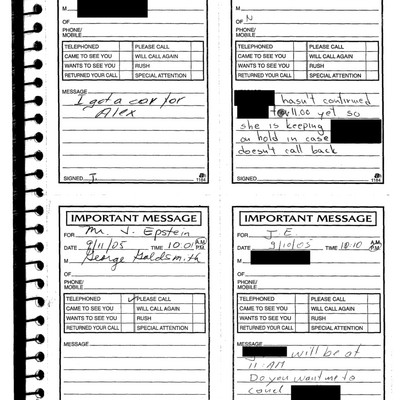 M
OF
PHONE/
MOBILE
TELEPHONED PLEASE CALL
CAME TO SEE YOU WILL CALL AGAIN
WANTS TO SEE YOU RUSH
RETURNED YOUR CALL SPECIAL ATTENTION
MESSAGE
I got a car for
Alex
SIGNED J. 1184
M
OF N
PHONE/
MOBILE
TELEPHONED PLEASE CALL
CAME TO SEE YOU WILL CALL AGAIN
WANTS TO SEE YOU RUSH
RETURNED YOUR CALL SPECIAL ATTENTION
MESSAGE
hasn't confirmed
11:00 yet so
she is keeping
on hold in case
doesn't call back
SIGNED 1184
IMPORTANT MESSAGE
FOR Mr. J. Epstein
DATE 9/11/05 TIME 10:01 A.M. P.M.
M George Goldsmith
OF
PHONE/
MOBILE
TELEPHONED ✓ PLEASE CALL
CAME TO SEE YOU WILL CALL AGAIN
WANTS TO SEE YOU RUSH
RETURNED YOUR CALL SPECIAL ATTENTION
MESSAGE
IMPORTANT MESSAGE
FOR J.E.
DATE 9/10/05 TIME 10:10 A.M. P.M.
M
OF
PHONE/
MOBILE
TELEPHONED PLEASE CALL
CAME TO SEE YOU WILL CALL AGAIN
WANTS TO SEE YOU RUSH
RETURNED YOUR CALL SPECIAL ATTENTION
MESSAGE
will be at
11 AM
Do you want me to
cancel